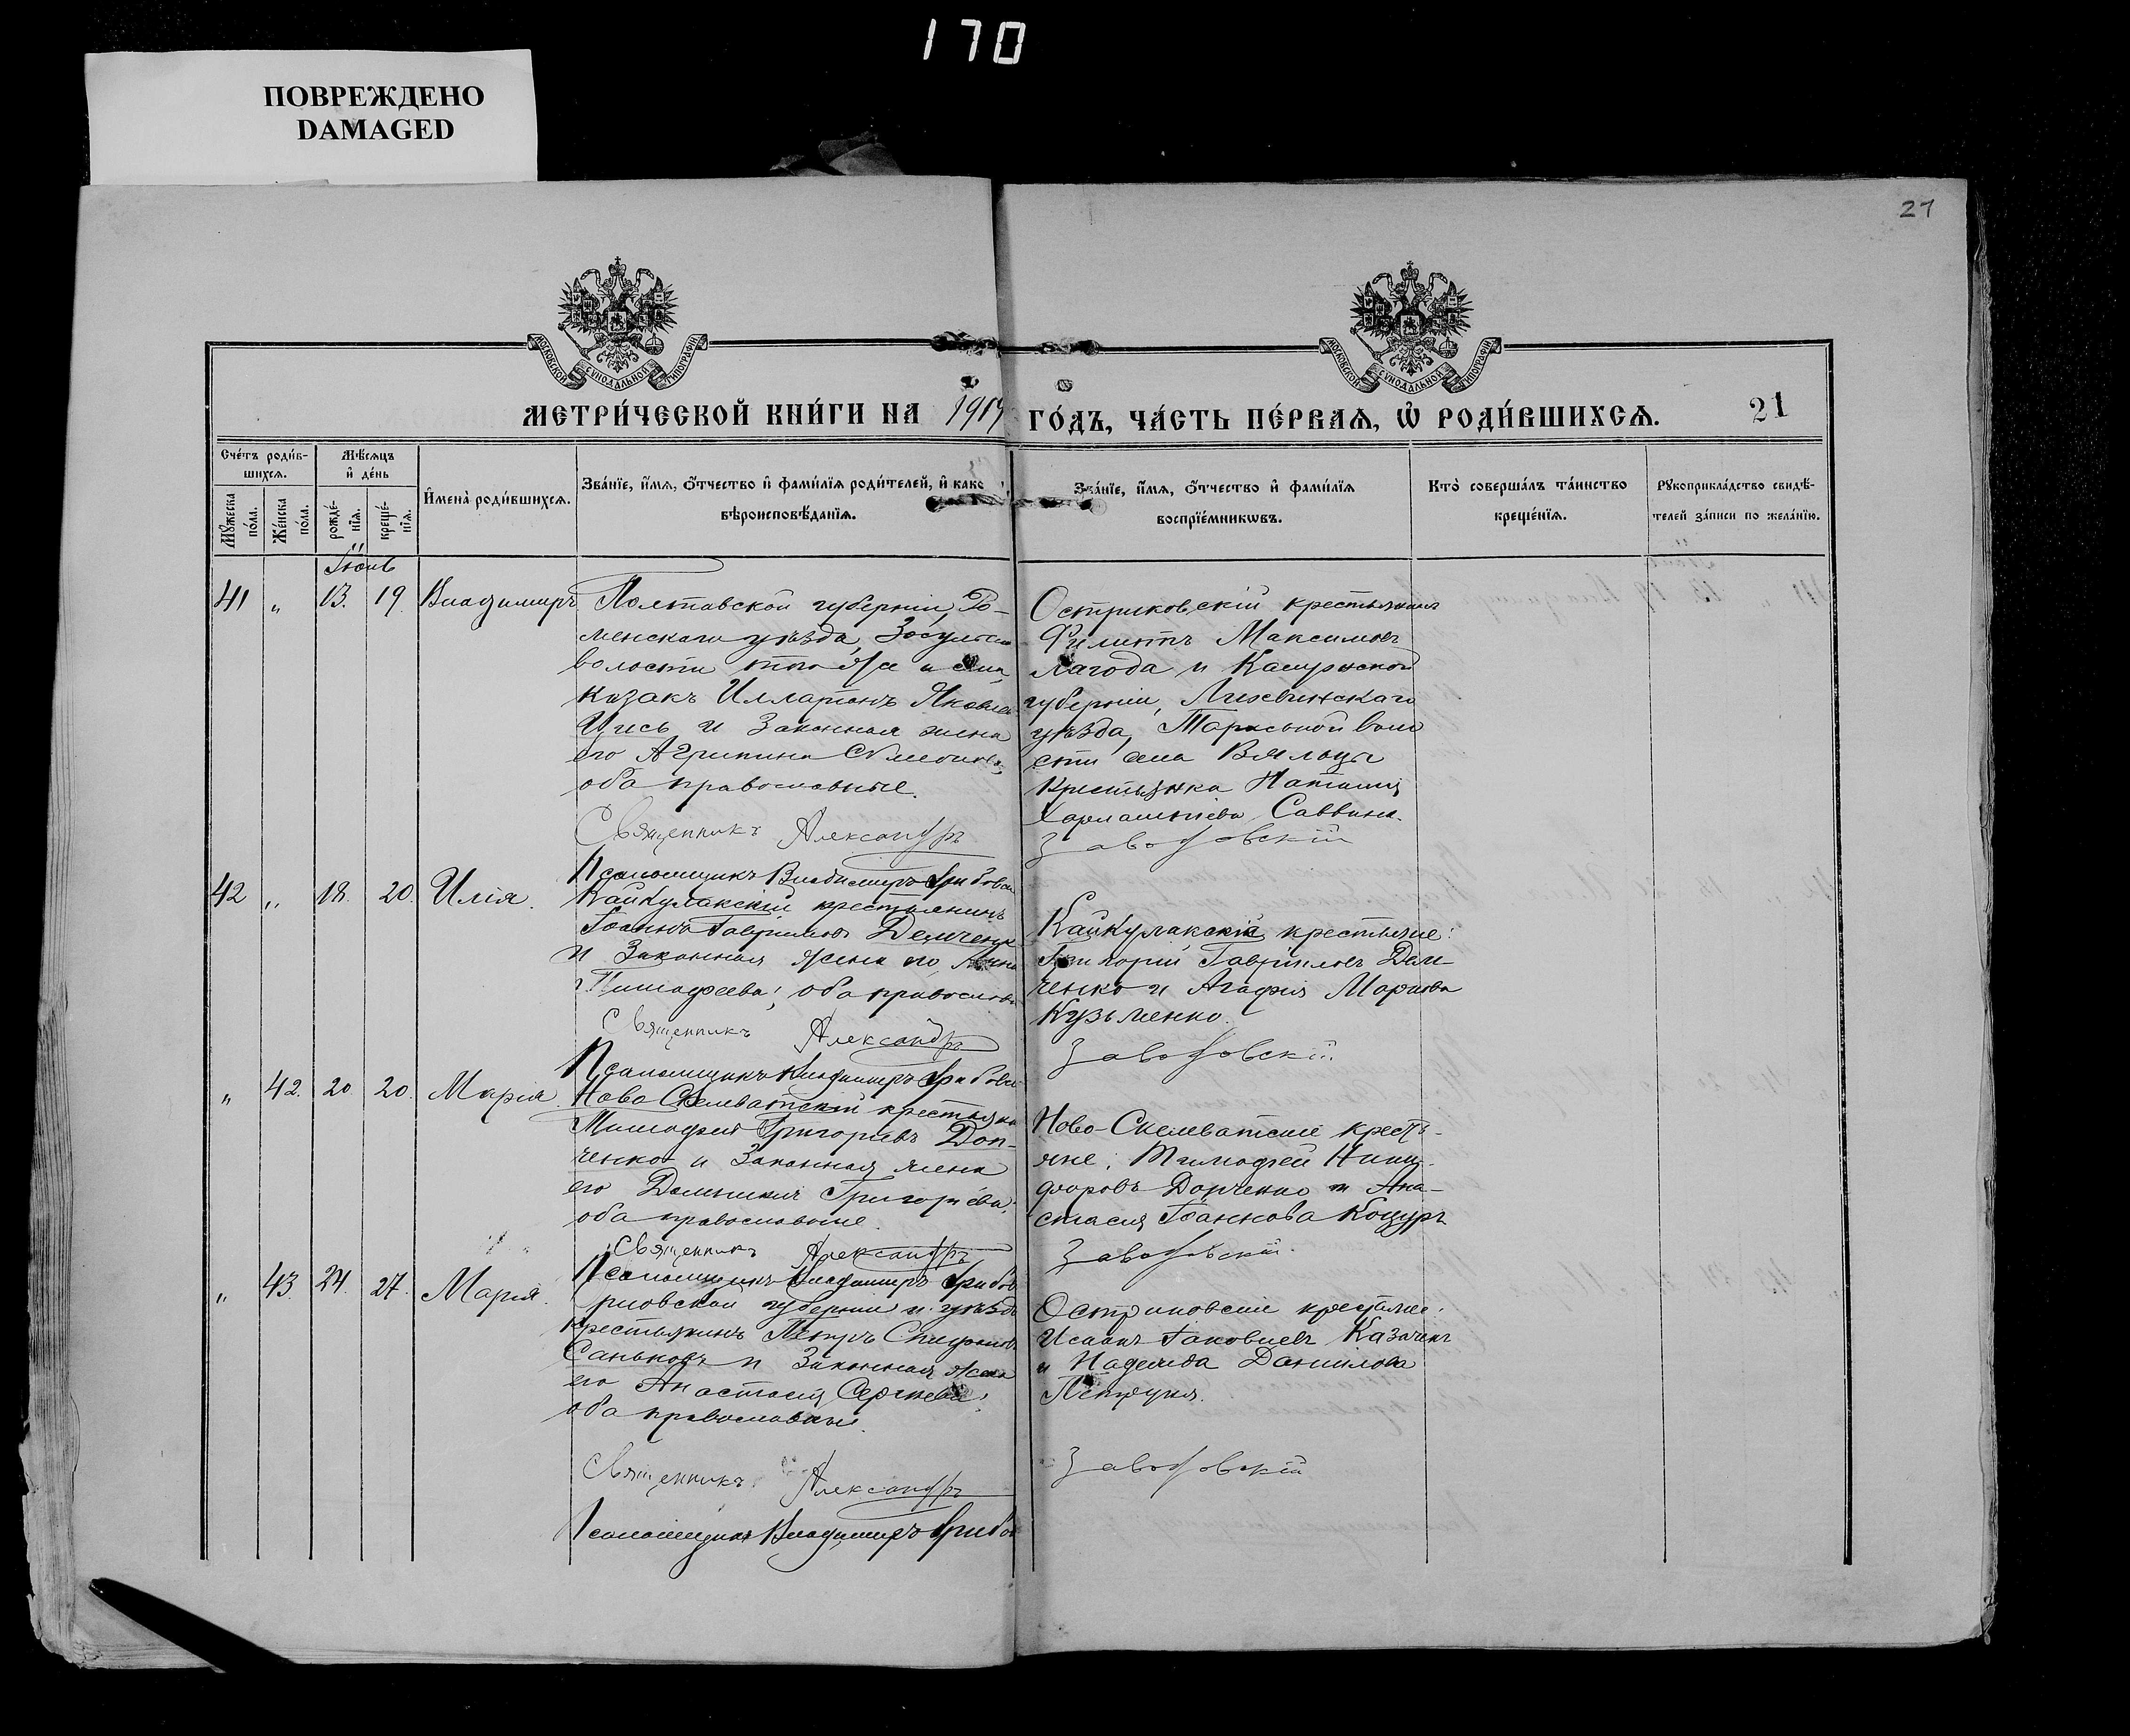 170
ПОВРЕЖДЕНО
DAMAGED
27
МОСКОВСКОЙ СѴНОДАЛЬНОЙ ТИПОГРАФІИ
МОСКОВСКОЙ СѴНОДАЛЬНОЙ ТИПОГРАФІИ
МЕТРИ́ЧЕСКОЙ КНИ́ГИ НА 1919 ГО́ДЪ, ЧА́СТЬ ПЕ́РВАѦ, Ѡ҆ РОДИ́ВШИХСѦ. 21
Сче́тъ роди́в-
шихсѧ.
Мѹжеска по́ла.
Же́нска по́ла.
Мѣ́сѧцъ
и҆ де́нь
рожде́-
нїѧ.
креще́-
нїѧ.
И҆мена̀ роди́вшихсѧ.
Зва́нїе, и҆́мѧ, ѻ҆́тчество и҆ фами́лїѧ роди́телей, и҆ како
вѣроисповѣ́данїѧ.
Зва́нїе, и҆́мѧ, ѻ҆́тчество и҆ фами́лїѧ
воспрїе́мникѡвъ.
Кто̀ соверша́лъ та́инство
креще́нїѧ.
Рѹкоприкла́дство свидѣ́-
телей за́писи по жела́нїю.
Іюнь
41 " 13. 19. Владимиръ
Полтавской губерніи, Ро-
менскаго уѣзда,
волости того же и села
Козакъ Илларіонъ Яковлев
и Законная жена
его Агрипина
оба православные.
Священникъ Александръ
Псаломщикъ Владимиръ
Остриковскій крестьянинъ
Филиппъ Максимовъ
Лагода и Калужской
губерніи, Лихвинскаго
уѣзда, волo
сти села Вяльцы
крестьянка Наталія
Саввина.
Заводовскій
42 " 18. 20. Илія.
Кайкулакскій крестьянинъ
Іоаннъ Гавриловъ Демченко
и Законная жена его Анна
Тимофеева; оба православ
Священникъ Александръ
Псаломщикъ Владимиръ
Кайкулакскіе крестьяне:
Григорій Гавриловъ Дем-
ченко и Агафія Маркова
Кузьменко.
Заводовскій.
" 42. 20. 20. Марія.
Ново Скелеватскій крестьянин
Тимофей Григорьевъ Дон-
ченко и Законная жена
его Домникія Григорьева,
оба православные.
Священникъ Александръ
Псаломщикъ Владимиръ
Ново-Скелеватскіе кресть-
яне: Тимофей Ники-
форовъ Донченко и Ана-
стасія Іоаннова Коцуръ
Заводовскій.
" 43. 24. 27. Марія.
губерніи и уѣзда
крестьянинъ Петръ
Саньковъ и Законная жена
его Анастасія Сергѣева;
оба православные.
Священникъ Александръ
Псаломщикъ Владимиръ
Остриковскіе крестьяне:
Исаакъ Іаковлевъ Казачекъ
и Надежда Данилова
Заводовскій